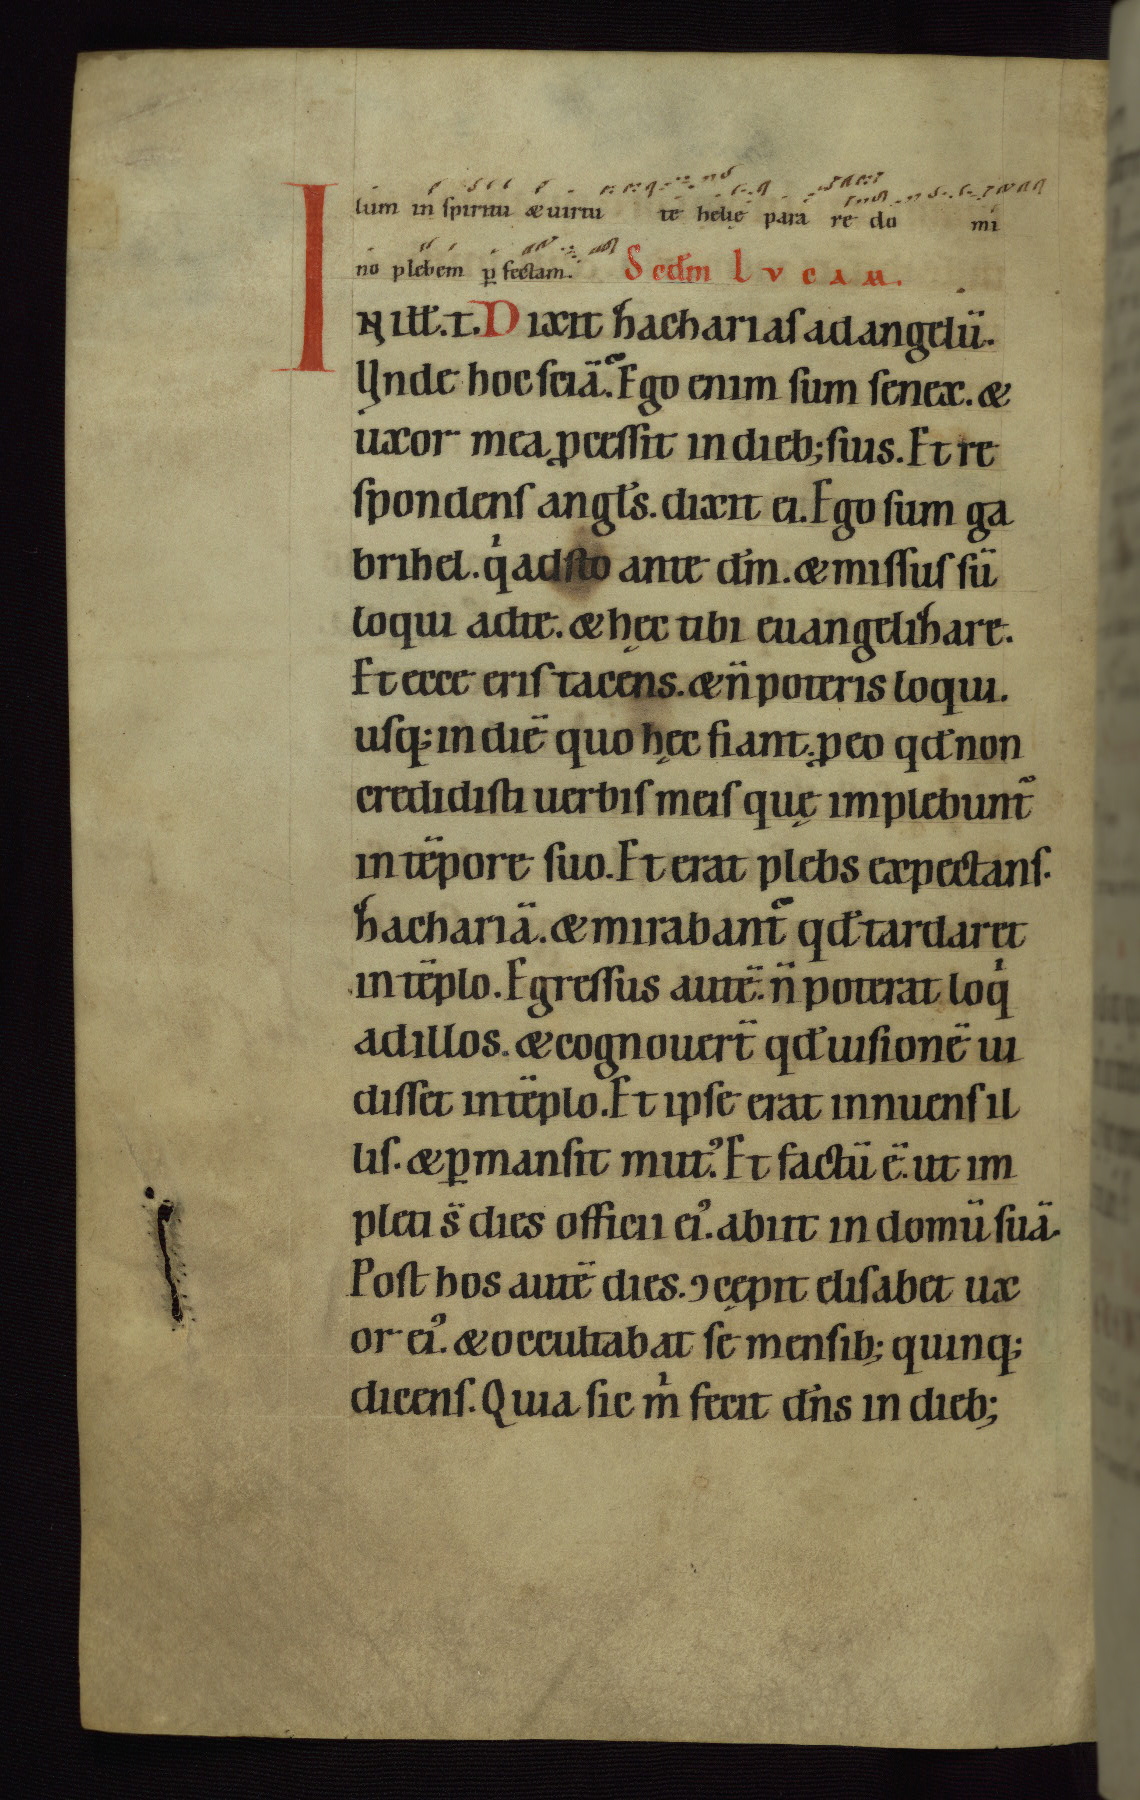 lum in spiritu & uirtu te helię para re do mi
no plebem ꝑfectam. Scd̄m LVCAM.
IN ILL̄. T. Dixit ƕacharias ad angelū.
Unde hoc sciā. Ego enim sum senex. &
uxor mea ꝓcessit in dieb; suis. Et re
spondens angl̄s. dixit ei. Ego sum ga
brihel. qͥ adsto ante dm̄. & missus sū
loqui ad te. & hęc tibi euangeliƕare.
Et ecce eris tacens. & n̄ poteris loqui.
usq; in diē quo hęc fiant. ꝓ eo qd̄ non
credidisti uerbis meis quę implebunt̄
in tēpore suo. Et erat plebs expectans.
ƕachariā. & mirabant̄ qd̄ tardaret
in tēplo. Egressus autē. n̄ poterat loqͥ
ad illos. & cognouert̄ qd̄ uisionē ui
disset in tēplo. Et ipse erat innuens il
lis. & ꝑmansit mutꝰ. Et factū ē. ut im
pleti s̄ dies officii eiꝰ. abiit in domū suā.
Post hos autē dies. ꝯcępit elisabet ux
or eiꝰ. & occultabat se mensib; quinq;
dicens. Quia sic mͥ fecit dn̄s in dieb;